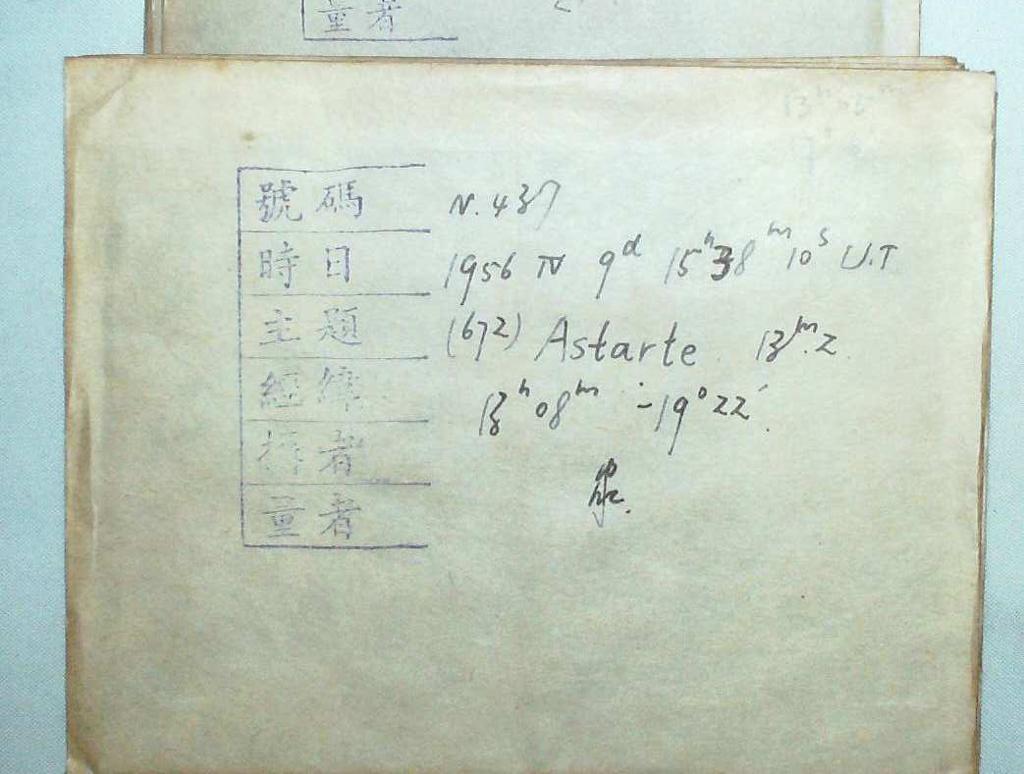 量者
13ʰ 05ᵐ
號碼 N. 437
時日 1956 IV 9ᵈ 15ʰ38ᵐ10ˢ U.T
主題 (672) Astarte 13ᵐ.2
經緯 13ʰ08ᵐ -19°22′
拆者
量者